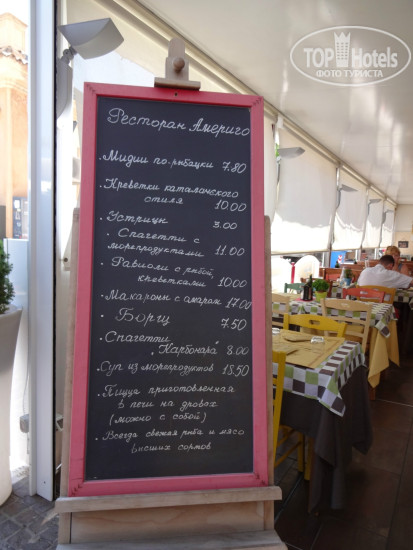 TOPHotels
ФОТО ТУРИСТА
Ресторан Америго
• Мидии по-рыбацки 7.80
• Креветки каталанского
стиля 10.00
• Устрицы 3.00
• Спагетти с
морепродуктами 11.00
• Равиоли с рыбой,
креветками 10.00
• Макароны с омаром 17.00
• Борщ 7.50
• Спагетти
"Карбонара" 8.00
• Суп из морепродуктов 18.50
• Пицца приготовленная
в печи на дровах
(можно с собой)
• Всегда свежая рыба и мясо
высших сортов